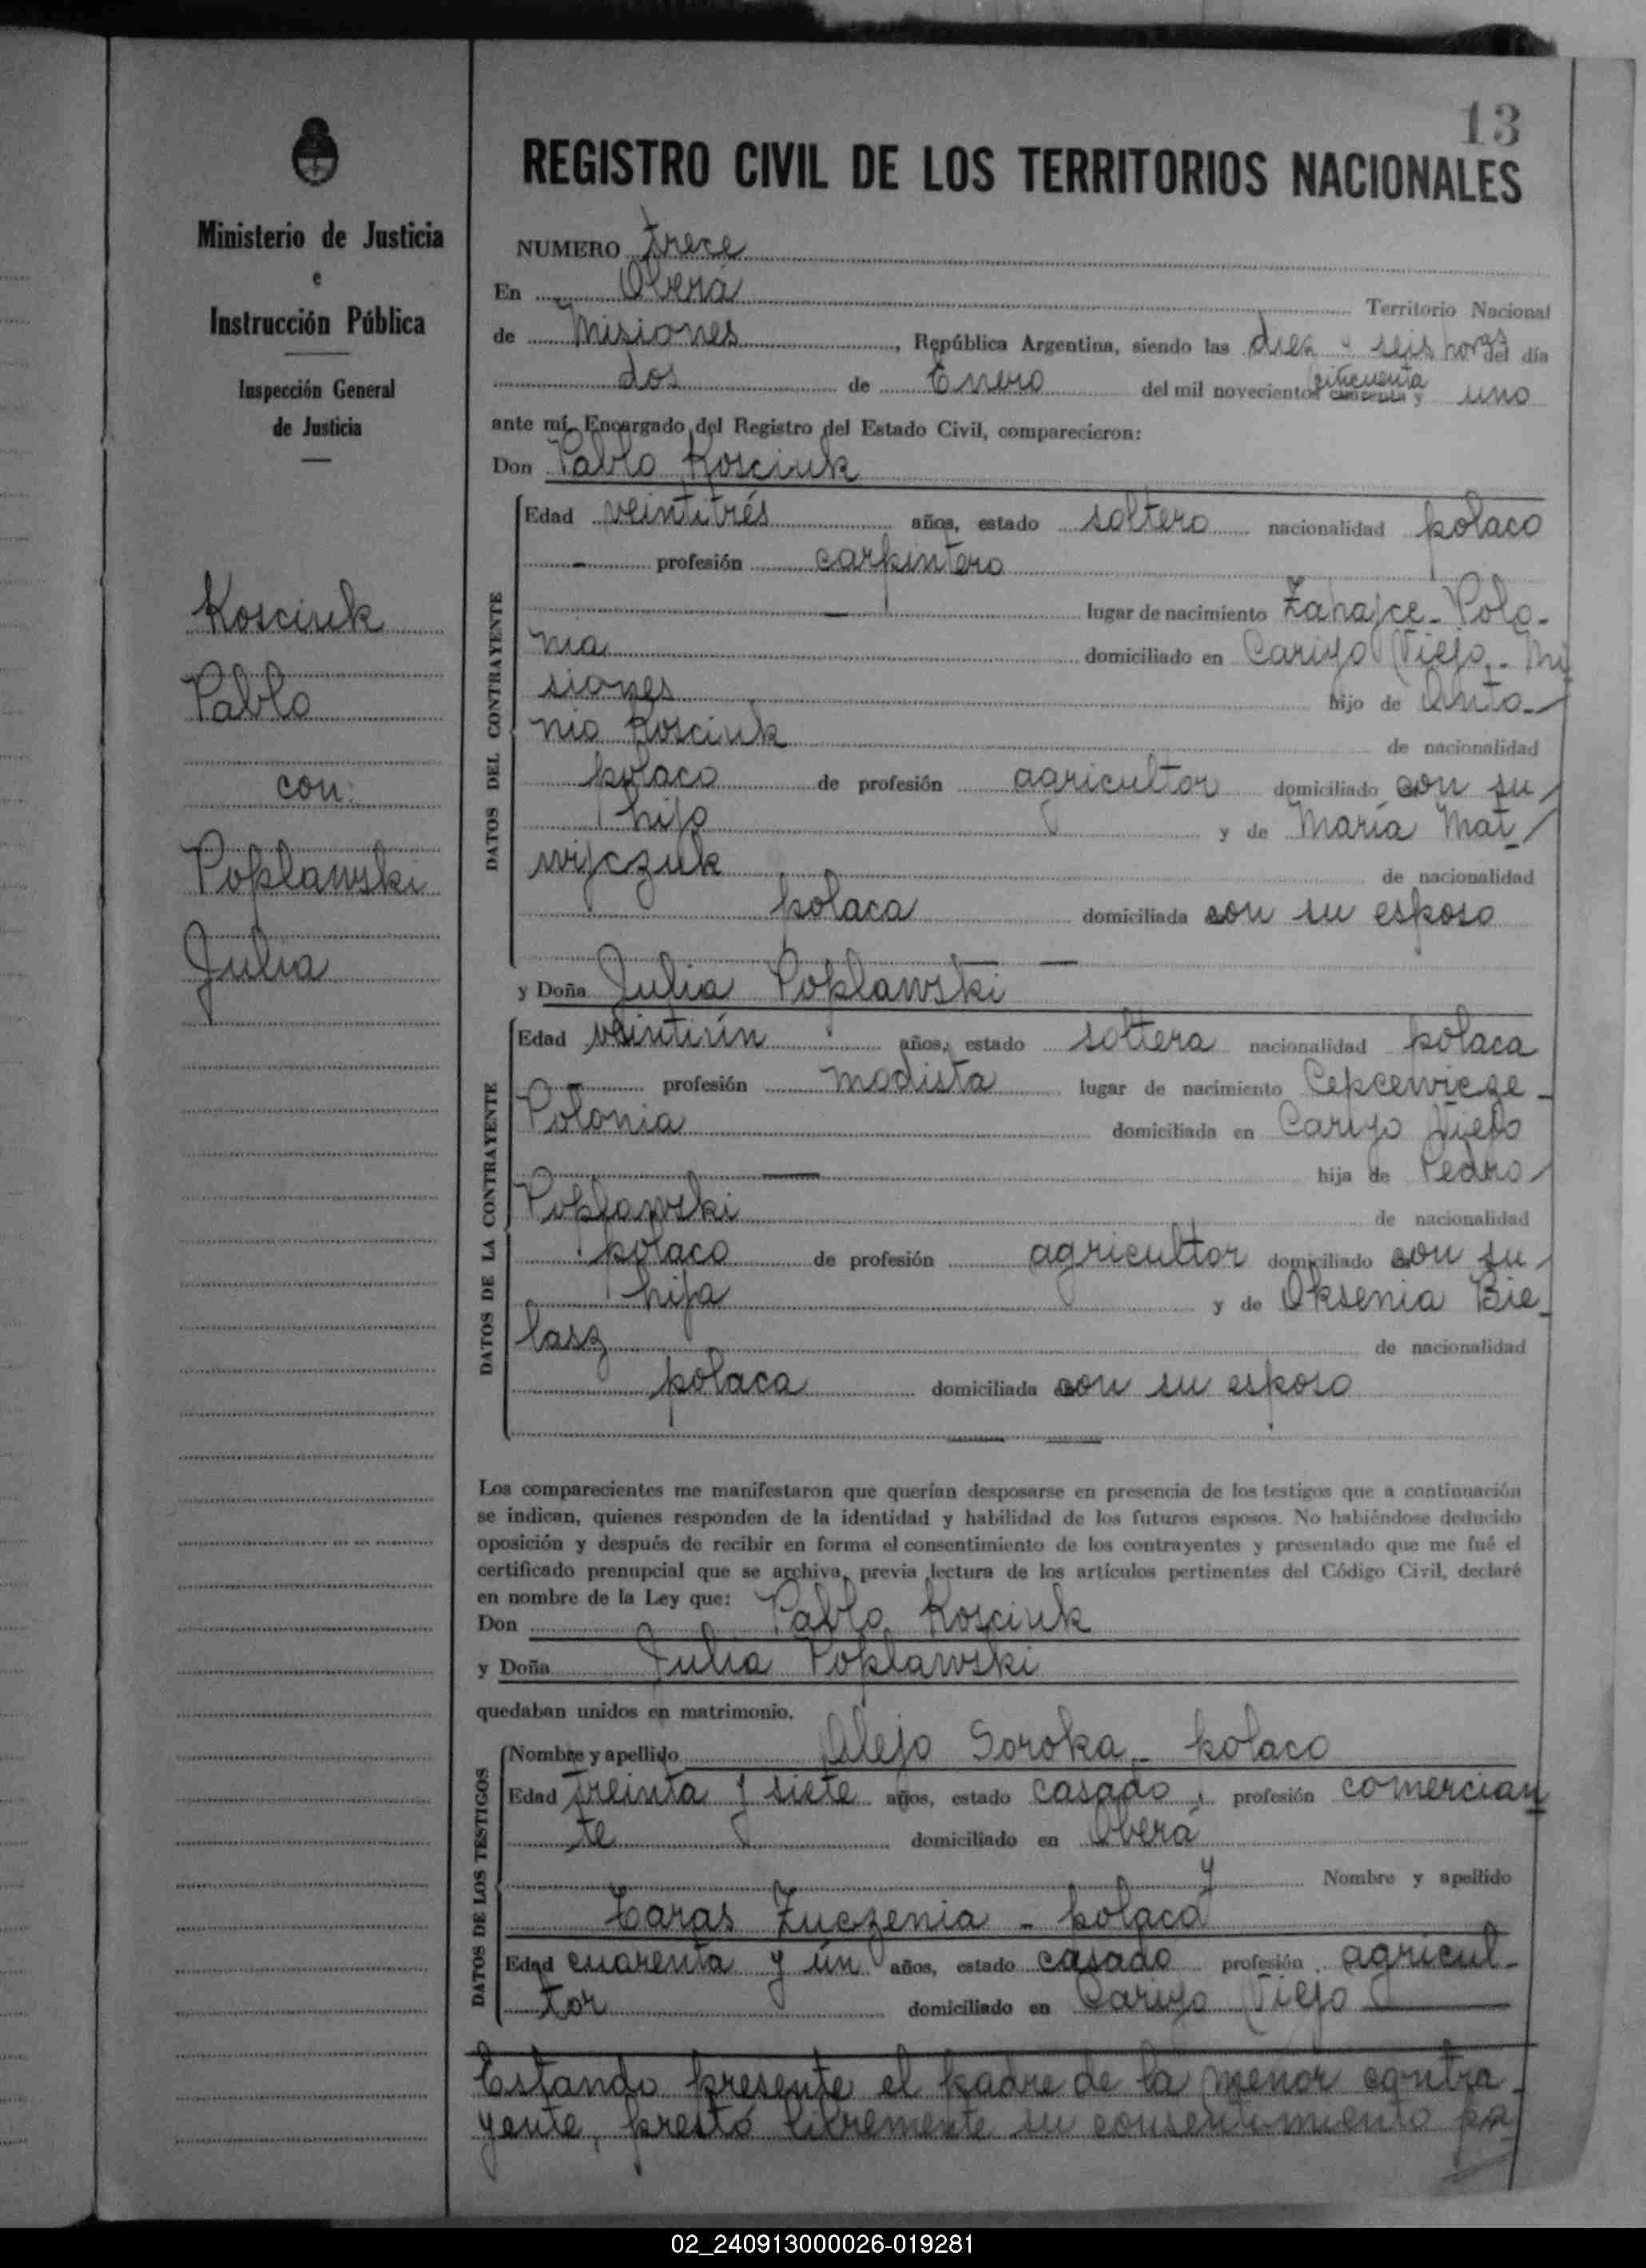 13
REGISTRO CIVIL DE LOS TERRITORIOS NACIONALES
Ministerio de Justicia
e
Instrucción Pública
Inspección General
de Justicia
Kosciuk
Pablo
con:
Poplawski
Julia
NUMERO trece
En Oberá Territorio Nacional
de Misiones, República Argentina, siendo las diez y seis horas del día
dos de Enero del mil novecientos cincuenta y uno
ante mí, Encargado del Registro del Estado Civil, comparecieron:
Don Pablo Kosciuk
DATOS DEL CONTRAYENTE
Edad veintitrés años, estado soltero nacionalidad polaco
- profesión carpintero
— lugar de nacimiento Zahajce - Polo-
nia domiciliado en Cariyo Viejo - Mi
siones hijo de Anto-
nio Kosciuk de nacionalidad
polaco de profesión agricultor domiciliado con su
hijo y de María Mat
wijczuk de nacionalidad
polaca domiciliada con su esposo
y Doña Julia Poplawski
DATOS DE LA CONTRAYENTE
Edad veintiún años, estado soltera nacionalidad polaca
- profesión modista lugar de nacimiento Cepcewicze -
Polonia domiciliada en Cariyo Viejo
— hija de Pedro
Poplawski de nacionalidad
polaco de profesión agricultor domiciliado con su
hija y de Oksenia Bie-
lasz de nacionalidad
polaca domiciliada con su esposo
Los comparecientes me manifestaron que querían desposarse en presencia de los testigos que a continuación
se indican, quienes responden de la identidad y habilidad de los futuros esposos. No habiéndose deducido
oposición y después de recibir en forma el consentimiento de los contrayentes y presentado que me fué el
certificado prenupcial que se archiva, previa lectura de los artículos pertinentes del Código Civil, declaré
en nombre de la Ley que:
Don Pablo Kosciuk
y Doña Julia Poplawski
quedaban unidos en matrimonio.
DATOS DE LOS TESTIGOS
Nombre y apellido Alejo Soroka - polaco
Edad treinta y siete años, estado casado profesión comercian
te domiciliado en Oberá
y Nombre y apellido
Taras Zuczenia - polaco
Edad cuarenta y ún años, estado casado profesión agricul-
tor domiciliado en Cariyo Viejo
Estando presente el padre de la menor contra-
yente, prestó libremente su consentimiento pa
02_240913000026-019281